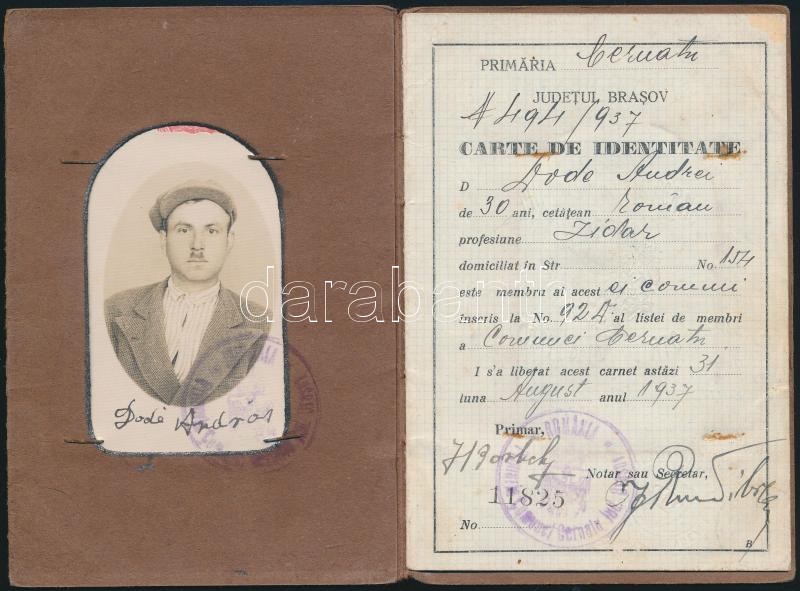 Dodé András
PRIMĂRIA Cernatu
JUDEŢUL BRAŞOV
N 494/937
CARTE DE IDENTITATE
D Dode Andrei
de 30 ani, cetăţean român
profesiune Zidar
domiciliat în Str No. 154
este membru al acest ei comuni
înscris la No. 92 A al listei de membri
a Comunei Cernatu
I s'a libefat acest carnet astăzi 31
luna August anul 1937
Primar,
Notar sau Secretar,
11825
No.
B
darabanth